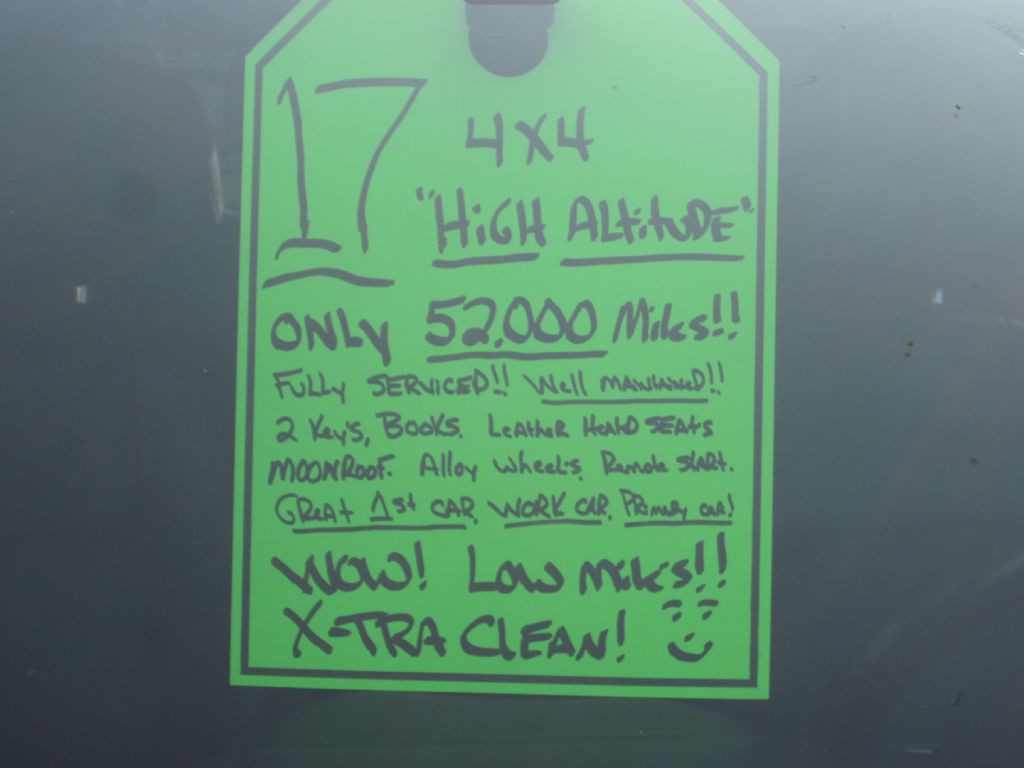 17 4X4
"HiGH ALtitUDE"
ONLY 52,000 Miles!!
FULLY SERVICED!! Well MAINtAINED!!
2 Key's, BOOKS. LEATHER HEATD SEATS
MOONROOF. Alloy Wheels, Remote START.
GREAT 1st CAR, WORK CAR, PRIMARY CAR!
WOW! LOW Miles!!
X-TRA CLEAN!